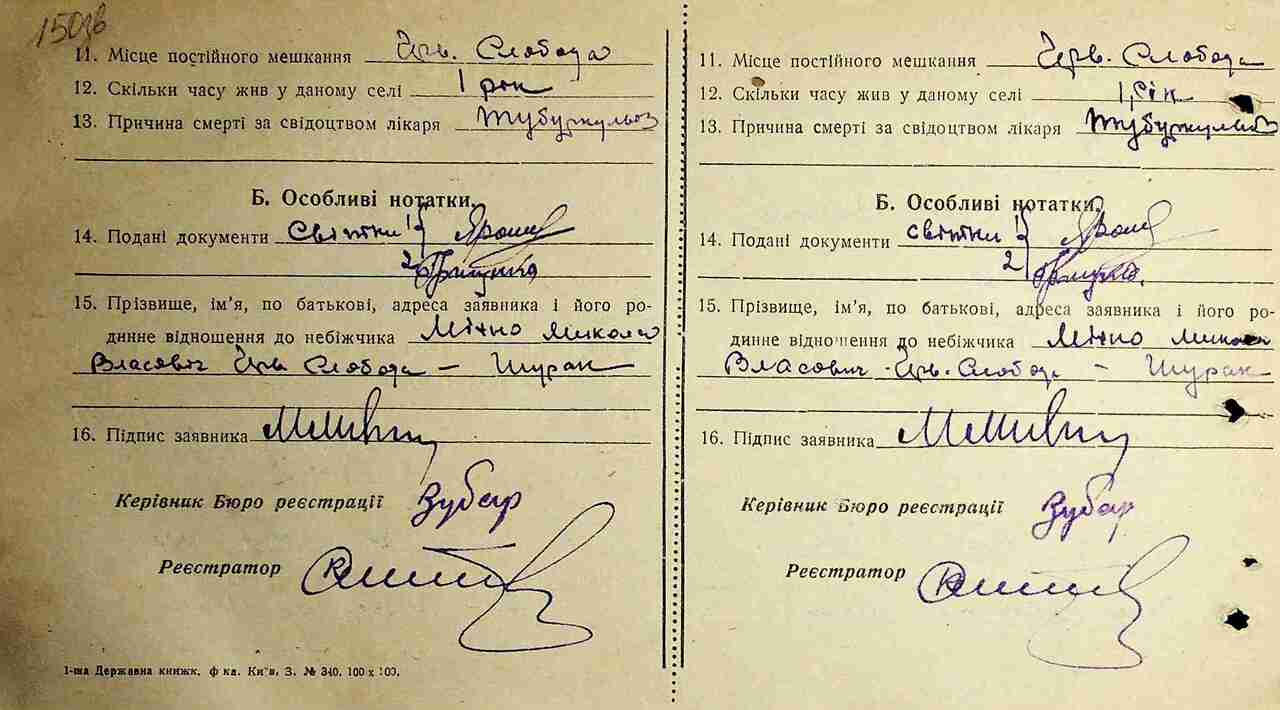 150зв
11. Місце постійного мешкання Черв. Слобода
12. Скільки часу жив у даному селі 1 рік
13. Причина смерті за свідоцтвом лікаря туберкульоз
Б. Особливі нотатки.
14. Подані документи Світки 1
2
15. Прізвище, ім'я, по батькові, адреса заявника і його ро-
динне відношення до небіжчика Міхно Микола
Власович Чрв. Слобода – Шурак
16. Підпис заявника
Керівник Бюро реєстрації Зубар
Реєстратор
1-ша Державна книжк. ф-ка. Київ. З. № 340. 100 х 100.
11. Місце постійного мешкання Черв. Слобода
12. Скільки часу жив у даному селі 1 рік
13. Причина смерті за свідоцтвом лікаря туберкульоз
Б. Особливі нотатки.
14. Подані документи світки 1
2
15. Прізвище, ім'я, по батькові, адреса заявника і його ро-
динне відношення до небіжчика Міхно Микола
Власович Чрв. Слобода – Шурак
16. Підпис заявника
Керівник Бюро реєстрації Зубар
Реєстратор